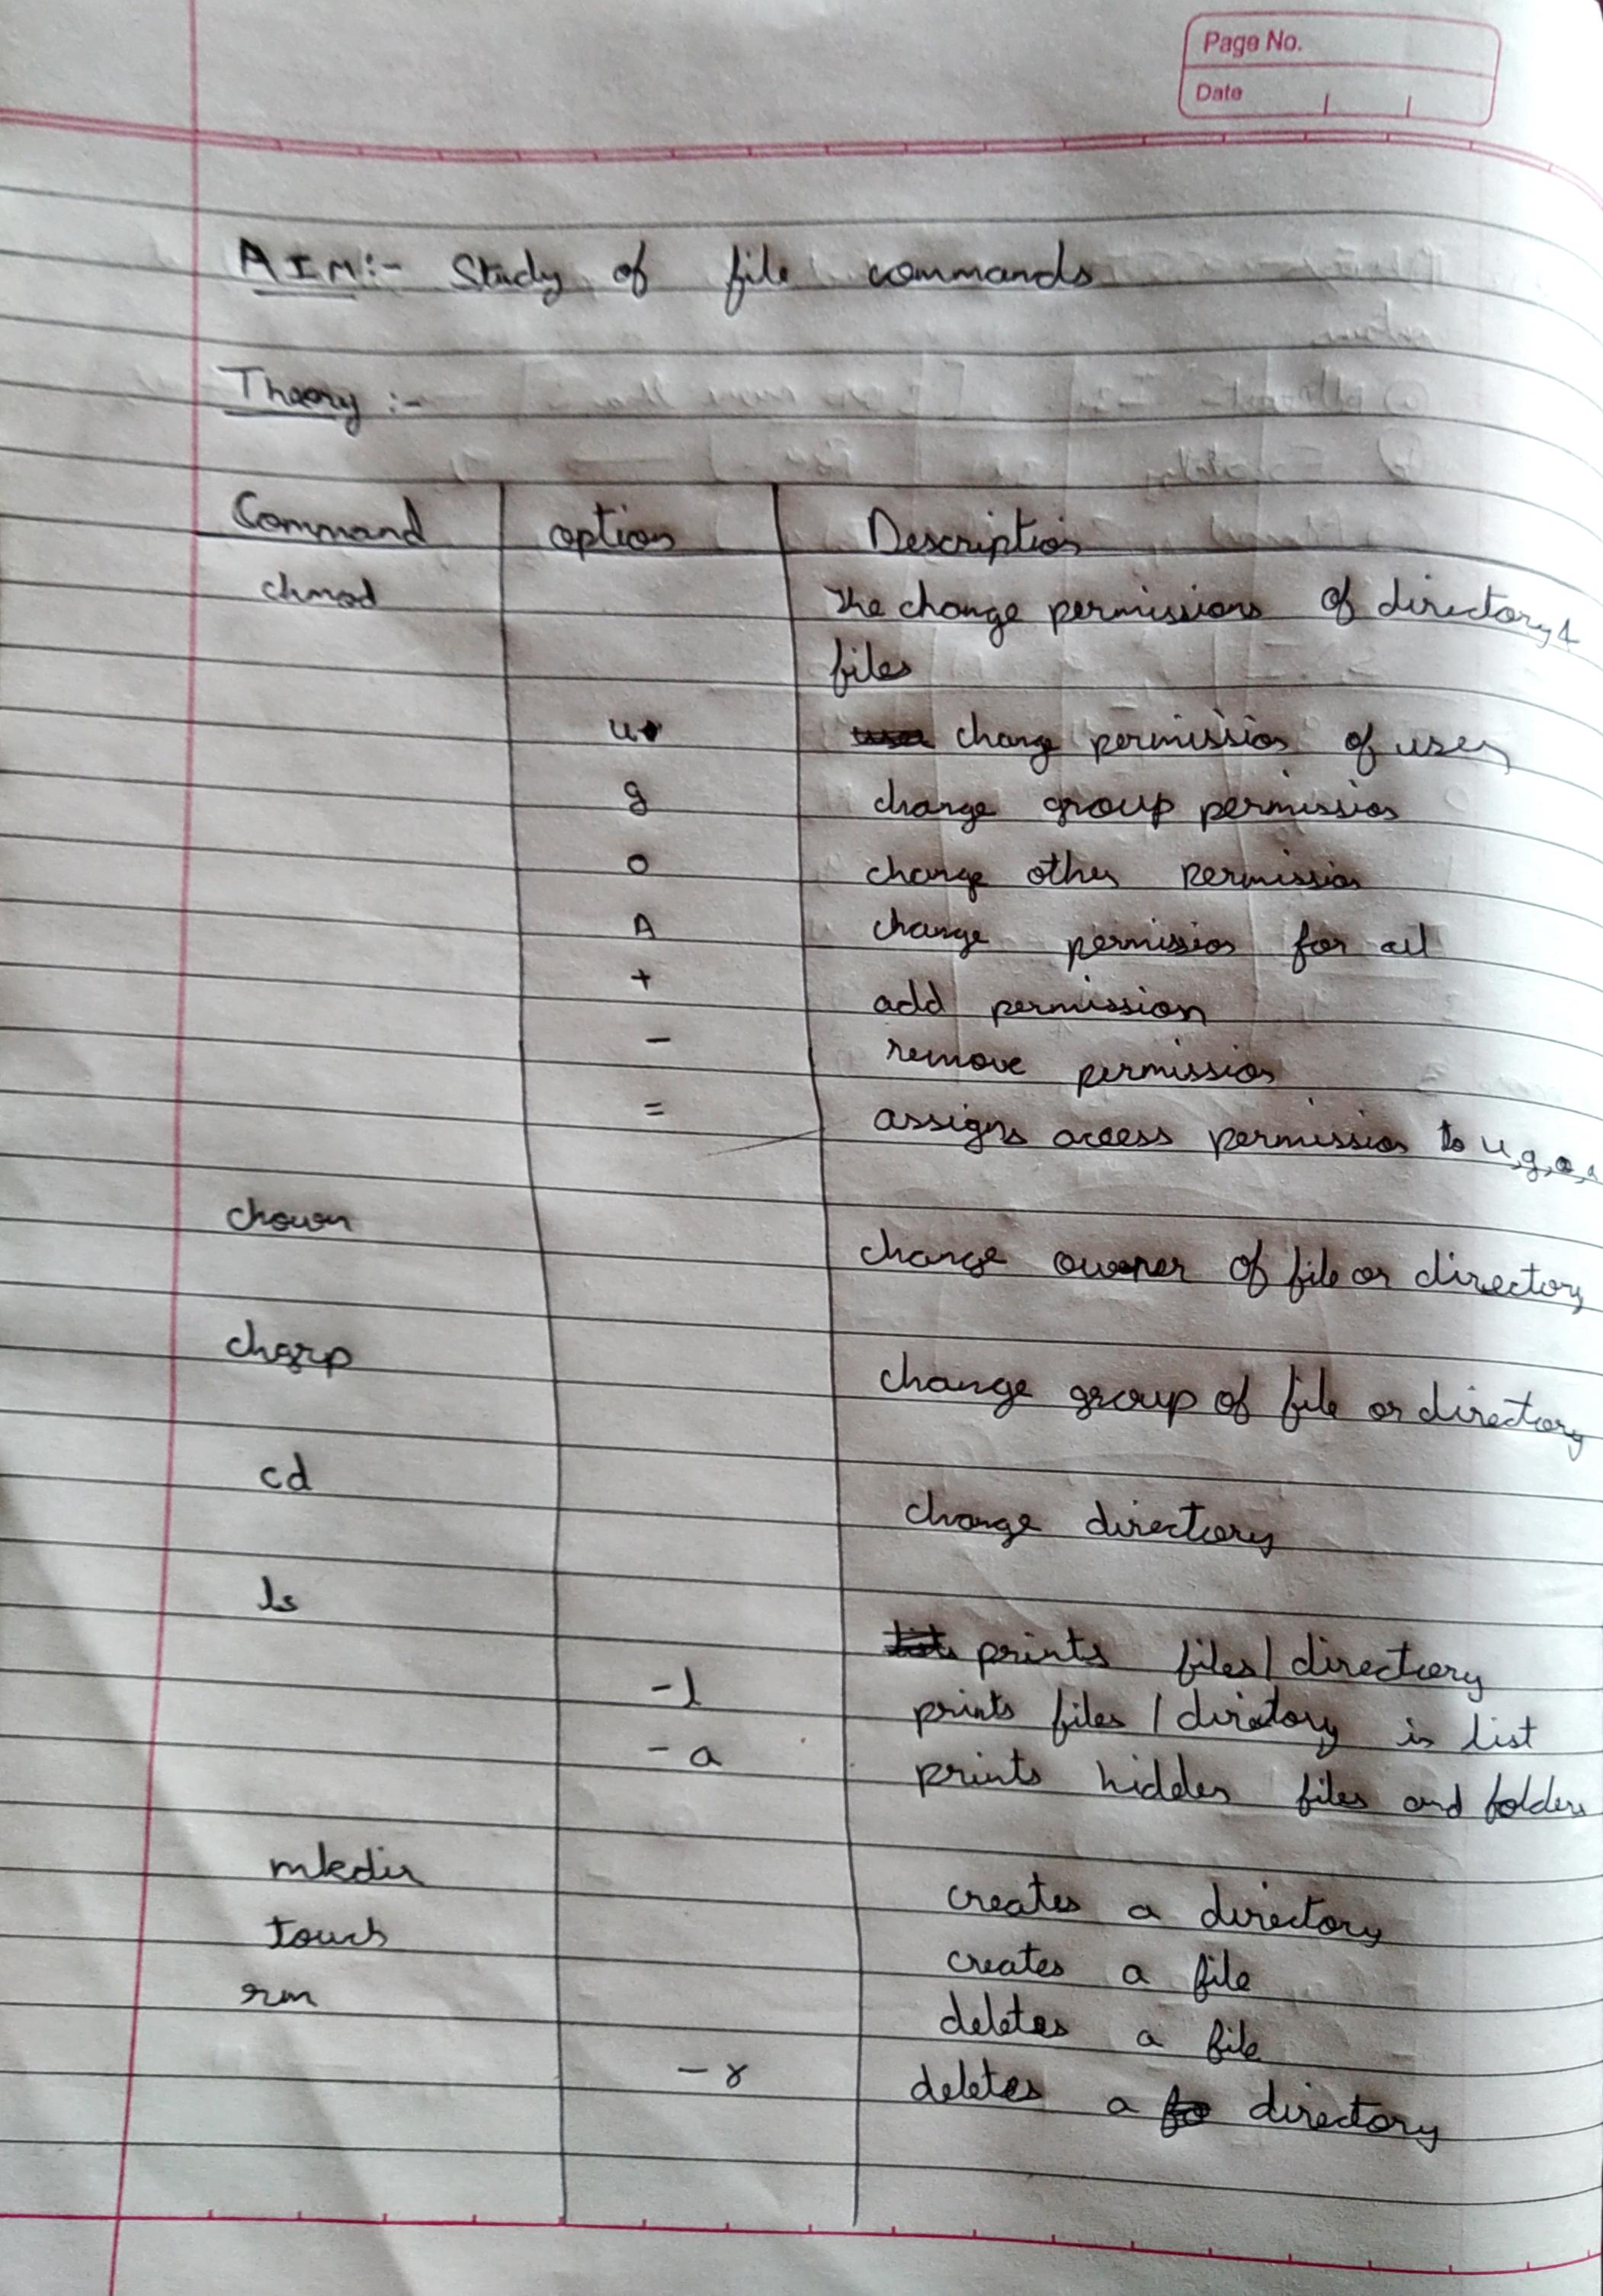 Page No.
Date
AIM:- Study of file commands
Theory :-
Command option Description
chmod The change permissions of directory &
files
u change permission of user
g change group permission
o change other permission
A change permission for all
+ add permission
- remove permission
= assigns access permission to u,g,o,a
chown change owner of file or directory
chgrp change group of file or directory
cd change directory
ls prints files/directory
-l prints files/diretory in list
-a prints hidden files and folders
mkdir creates a directory
touch creates a file
rm deletes a file
-r deletes a directory